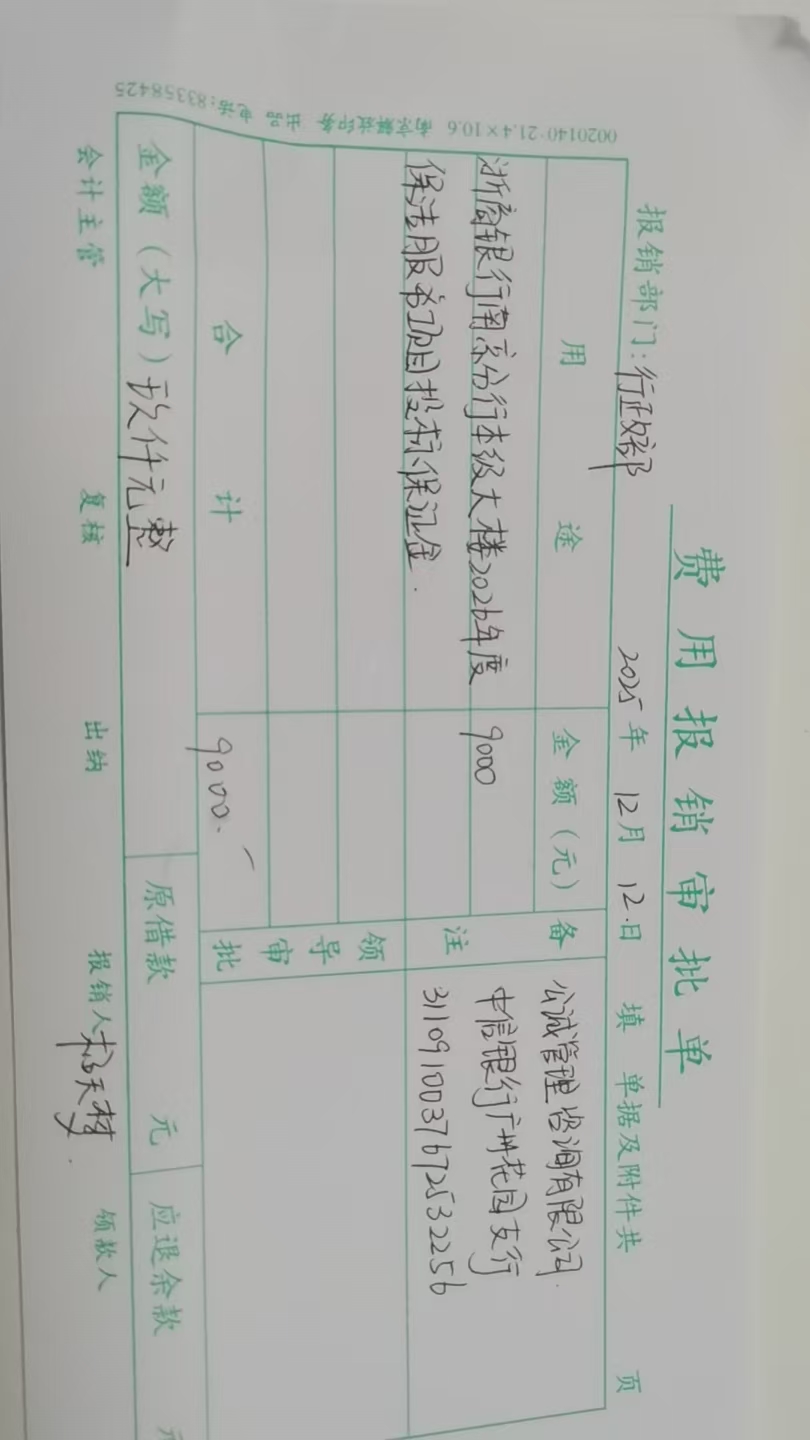 费用报销审批单
报销部门：行政部 2025年 12月 12日 填 单据及附件共 页
用途 金额（元） 备注
浙商银行南京分行本级大楼2026年度 9000
保洁服务项目投标保证金.
公诚管理咨询有限公司.
中信银行广州花园支行
3110910037672532256
领导审批
合计 9000.—
金额（大写）玖仟元整 原借款 元 应退余款
会计主管 复核 出纳 报销人 领款人
0020140-21.4×10.6 南京 印务 出品 电话:83358425